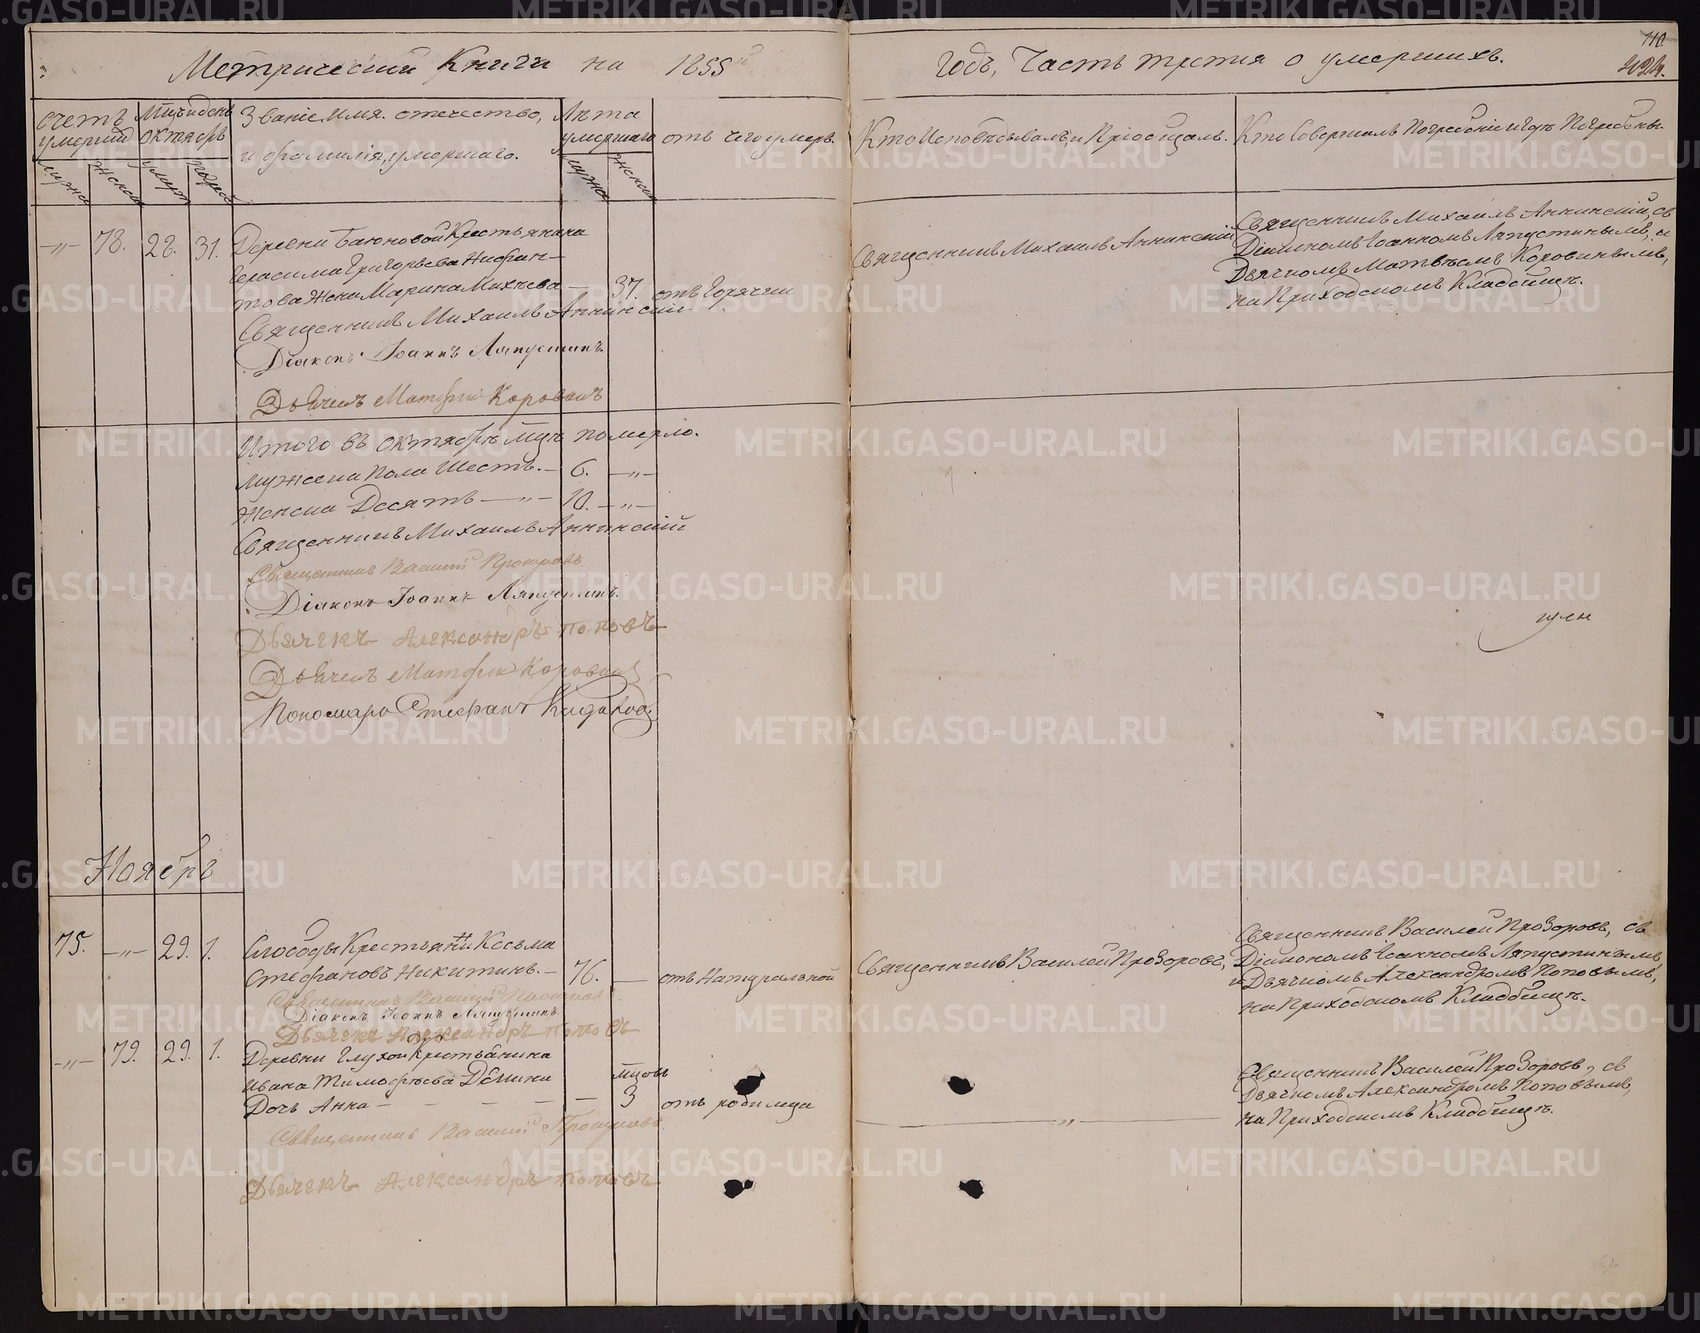 Метрической Книги на 1855й Годъ, Часть третия о умершихъ.
110.
счетъ умершихъ
Мцъ и день октябрь
Званіе, имя, отечество, и фамилія умершаго.
Лѣта умершаго
отъ чего умеръ.
Кто Исповѣдывалъ и Пріобщалъ.
Кто Совершалъ Погребеніе и гдѣ Погребены.
мужск
женска
женска
—„— 78. 28. 31. Деревни Баюновой Крестьянина
Герасима Григорьева
това Жена Марина Михѣева — 37. отъ Горячки
Священникъ Михаилъ Аннинскій
Священникъ Михаилъ Аннинскій, съ
Діакономъ Іоанномъ Ляпустинымъ, и
Дьячкомъ Матвѣемъ Коровинымъ,
на Приходскомъ Кладбищѣ.
Священникъ Михаилъ Аннинскій
Діаконъ Іоаннъ Ляпустинъ
Дьячекъ Матфей Коровинъ
Итого въ октябрѣ мцѣ померло.
мужеска Пола Шесть. — 6. —„—
женска Десять —„— 10. —„—
Священникъ Михаилъ Аннинскій
Священникъ Василій Прозоровъ
Діаконъ Іоаннъ Ляпустинъ.
Дьячекъ Александръ Поповъ
Дьячекъ Матфей Коровинъ
Пономарь Стефанъ
Ноябрь
75. —„— 29. 1. Слободы Крестьянинъ Косьма
Стефановъ Никитинъ. — 76. — отъ Натуральной
Священникъ Василей Прозоровъ,
Священникъ Василей Прозоровъ, съ
Діакономъ Іоанномъ Ляпустинымъ,
и Дьячкомъ Александромъ Поповымъ,
на Приходскомъ Кладбищѣ.
Священникъ Василій Прозоровъ
Діаконъ Іоаннъ Ляпустинъ
Дьячекъ Александръ Поповъ
—„— 79. 29. 1. Деревни Глухой Крестьянина
Ивана Тимофѣева Дёмина
мцовъ
Дочь Анна — — — — 3 отъ родимца
—„—
Священникъ Василей Прозоровъ, съ
Дьячкомъ Александромъ Поповымъ,
на Приходскомъ Кладбищѣ.
Священникъ Василій Прозоровъ
Дьячекъ Александръ Поповъ
METRIKI.GASO-URAL.RU